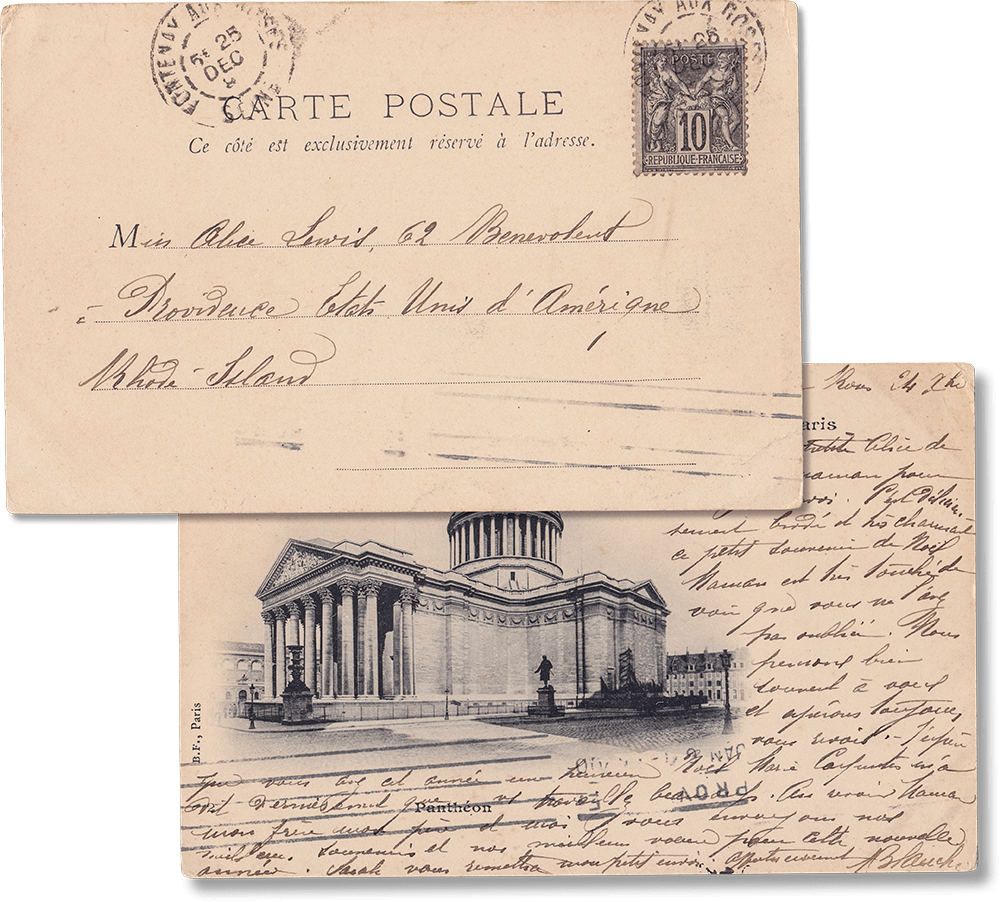 FONTENAY AUX ROSES
5E 25
DEC
CARTE POSTALE
Ce côté est exclusivement réservé à l'adresse.
POSTE
10
REPUBLIQUE FRANÇAISE
Miss Alice Lewis, 62 Benevolent
Providence Etats Unis d'Amérique
Rhode-Island
24 Xbre
aris
Alice de
maman pour
. C'est délicieu
sement brodé et très charmant
ce petit souvenir de Noël
Maman est très touchée de
voir que vous ne l'avez
pas oubliée. Nous
pensons bien
souvent à vous
et espérons toujours
vous revoir. - J'espère
que vous avez et année un heureux Noël Marie
écrit dernièrement que vous travaillez beaucoup. Au revoir Maman
mon frère mon père et moi vous envoyons nos
meilleurs souvenirs et nos meilleurs voeux pour cette nouvelle
année. Sarah vous remettra mon petit envoi. Affectueusement Blanche
B.F., Paris
Panthéon
JAN
PROV